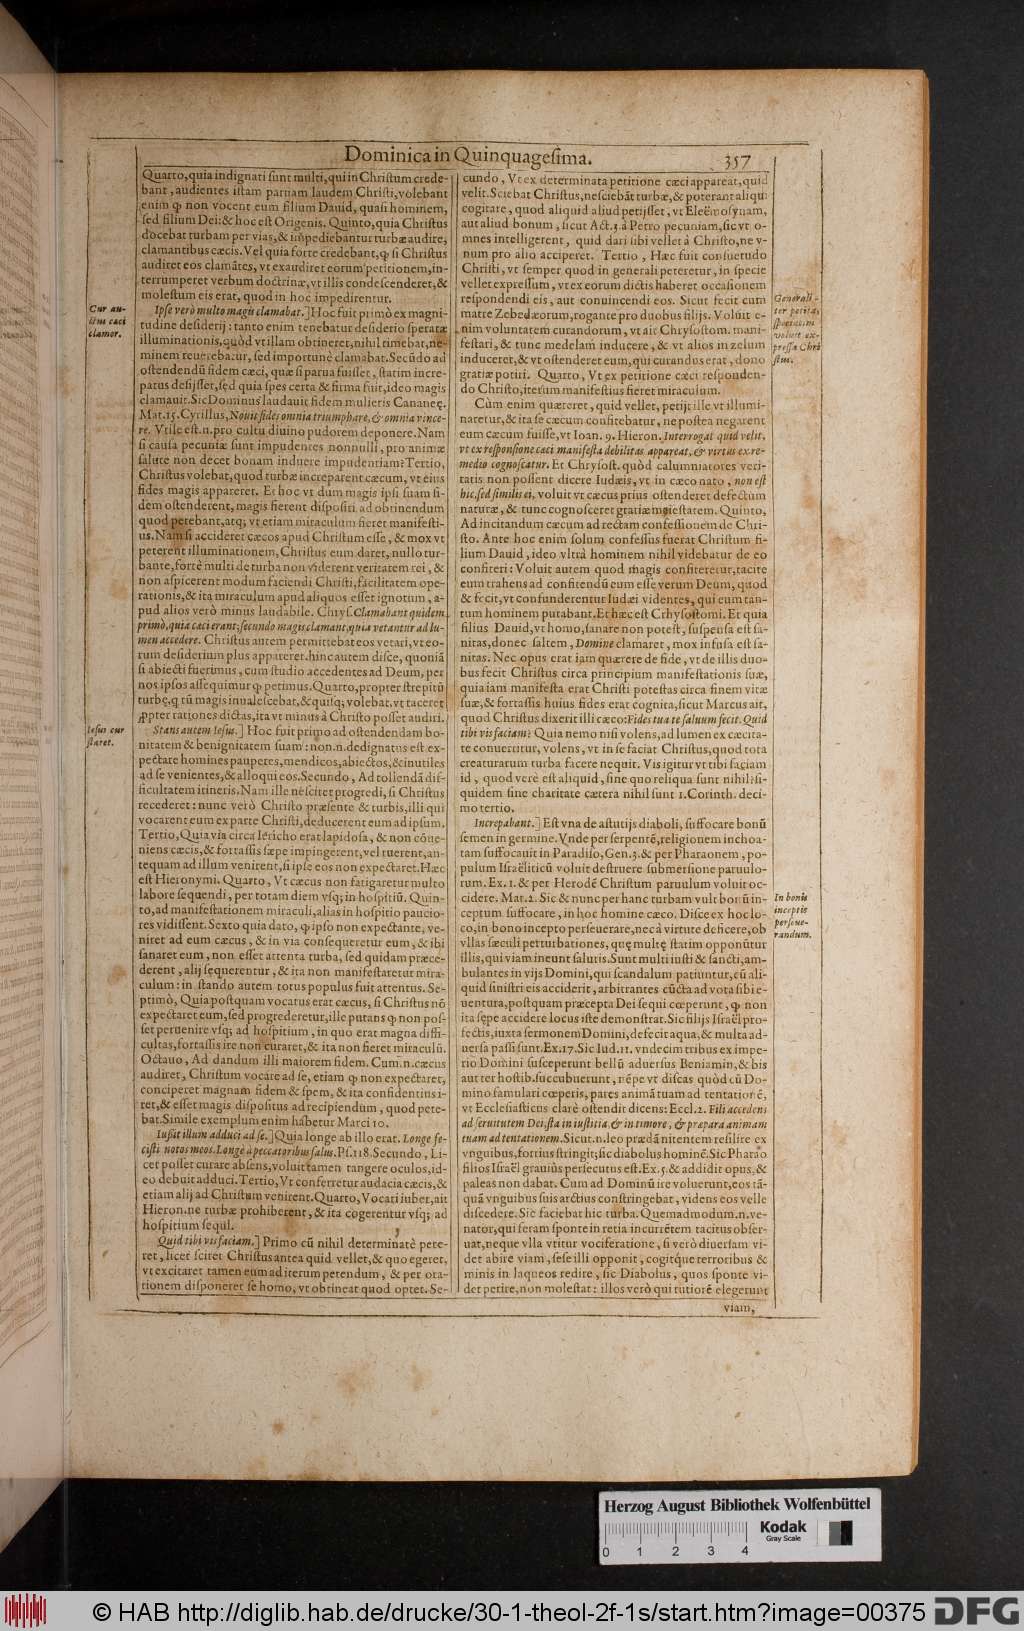 Dominica in Quinquagesima. 357
Quarto, quia indignati sunt multi, qui in Christum crede-
bant, audientes istam paruam laudem Christi, volebant
enim ꝙ non vocent eum filium Dauid, quasi hominem,
sed filium Dei: & hoc est Origenis. Quinto, quia Christus
docebat turbam per vias, & impediebantur turbæ audire,
clamantibus cæcis. Vel quia forte credebant, ꝙ si Christus
audiret eos clamãtes, vt exaudiret eorum petitionem, in-
terrumperet verbum doctrinæ, vt illis condescenderet, &
molestum eis erat, quod in hoc impedirentur.
Cur au-
tem cæci
clamor.
Ipse verò multo magis clamabat.] Hoc fuit primò ex magni-
tudine desiderij: tanto enim tenebatur desiderio speratæ
illuminationis, quòd vt illam obtineret, nihil timebat, ne-
minem reuerebatur, sed importunè clamabat. Secũdo ad
ostendendũ fidem cæci, quæ si parua fuisset, statim incre-
patus desijsset, sed quia spes certa & firma fuit, ideo magis
clamauit. Sic Dominus laudauit fidem mulieris Cananeę.
Mat. 15. Cyrillus, Nouit fides omnia triumphare, & omnia vince-
re. Vtile est. n. pro cultu diuino pudorem deponere. Nam
si causa pecuniæ sunt impudentes nonnulli, pro animæ
salute non decet bonam induere impudentiam? Tertio,
Christus volebat, quod turbæ increparent cæcum, vt eius
fides magis appareret. Et hoc vt dum magis ipsi suam fi-
dem ostenderent, magis fierent dispositi ad obtinendum
quod petebant, atq; vt etiam miraculum fieret manifesti-
us. Nam si accideret cæcos apud Christum esse, & mox vt
peterent illuminationem, Christus eum daret, nullo tur-
bante, fortè multi de turba non viderent veritatem rei, &
non aspicerent modum faciendi Christi, facilitatem ope-
rationis, & ita miraculum apud aliquos esset ignotum, a-
pud alios verò minus laudabile. Chrys. Clamabant quidem
primò, quia cæci erant: secundo magis clamant, quia vetantur ad lu-
men accedere. Christus autem permittebat eos vetari, vt eo-
rum desiderium plus appareret. hinc autem disce, quoniã
si abiecti fuerimus, cum studio accedentes ad Deum, per
nos ipsos assequimur ꝙ petimus. Quarto, propter strepitũ
turbę, q tũ magis inualescebat, & quisq; volebat, vt taceret
ꝓpter rationes dictas, ita vt minus à Christo posset audiri.
Iesus cur
staret.
Stans autem Iesus.] Hoc fuit primo ad ostendendam bo-
nitatem & benignitatem suam: non. n. dedignatus est ex-
pectare homines pauperes, mendicos, abiectos, & inutiles
ad se venientes, & alloqui eos. Secundo, Ad tollendã dif-
ficultatem itineris. Nam ille nesciret progredi, si Christus
recederet: nunc verò Christo præsente & turbis, illi qui
vocarent eum ex parte Christi, deducerent eum ad ipsum.
Tertio, Quia via circa Iericho erat lapidosa, & non cõue-
niens cæcis, & fortassis sæpe impingerent, vel ruerent, an-
tequam ad illum venirent, si ipse eos non expectaret. Hæc
est Hieronymi. Quarto, Vt cæcus non fatigaretur multo
labore sequendi, per totam diem vsq; in hospitiũ. Quin-
to, ad manifestationem miraculi, alias in hospitio paucio-
res vidissent. Sexto quia dato, ꝙ ipso non expectante, ve-
niret ad eum cæcus, & in via consequeretur eum, & ibi
sanaret eum, non esset attenta turba, sed quidam præce-
derent, alij sequerentur, & ita non manifestaretur mira-
culum: in stando autem totus populus fuit attentus. Se-
ptimò, Quia postquam vocatus erat cæcus, si Christus nõ
expectaret eum, sed progrederetur, ille putans ꝙ non pos-
set peruenire vsq; ad hospitium, in quo erat magna diffi-
cultas, fortassis ire non curaret, & ita non fieret miraculũ.
Octauo, Ad dandum illi maiorem fidem. Cum. n. cæcus
audiret, Christum vocare ad se, etiam ꝙ non expectaret,
conciperet magnam fidem & spem, & ita confidentius i-
ret, & esset magis dispositus ad recipiendum, quod pete-
bat. Simile exemplum enim habetur Marci 10.
Iussit illum adduci ad se.] Quia longe ab illo erat. Longe fe-
cisti notos meos. Longe à peccatoribus salus. Ps. 118. Secundo, Li-
cet posset curare absens, voluit tamen tangere oculos, id-
eo debuit adduci. Tertio, Vt conferretur audacia cæcis, &
etiam alij ad Christum venirent. Quarto, Vocari iubet, ait
Hieron. ne turbæ prohiberent, & ita cogerentur vsq; ad
hospitium sequi.
Quid tibi vis faciam.] Primo cũ nihil determinatè pete-
ret, licet sciret Christus antea quid vellet, & quo egeret,
vt excitaret tamen eum ad iterum petendum, & per ora-
tionem disponeret se homo, vt obtineat quod optet. Se-
cundo, Vt ex determinata petitione cæci appareat, quid
velit. Sciebat Christus, nesciebãt turbæ, & poterant aliqui
cogitare, quod aliquid aliud petijsset, vt Eleëmosynam,
aut aliud bonum, sicut Act. 3. à Petro pecuniam, sic vt o-
mnes intelligerent, quid dari sibi vellet à Christo, ne v-
num pro alio acciperet. Tertio, Hæc fuit consuetudo
Christi, vt semper quod in generali peteretur, in specie
vellet expressum, vt ex eorum dictis haberet occasionem
respondendi eis, aut conuincendi eos. Sicut fecit cum
matre Zebedæorum, rogante pro duobus filijs. Voluit e-
nim voluntatem curandorum, vt ait Chrysostom. mani-
festari, & tunc medelam inducere, & vt alios in zelum
induceret, & vt ostenderet eum, qui curandus erat, dono
gratiæ potiri. Quarto, Vt ex petitione cæci responden-
do Christo, iterum manifestius fieret miraculum.
Generali-
ter petita,
specialem
voluit ex-
pressa Chri
stus.
Cùm enim quæreret, quid vellet, petijt ille vt illumi-
naretur, & ita se cæcum confitebatur, ne postea negarent
eum cæcum fuisse, vt Ioan. 9. Hieron. Interrogat quid velit,
vt ex responsione cæci manifesta debilitas appareat, & virtus ex re-
medio cognoscatur. Et Chrysost. quòd calumniatores veri-
tatis non possent dicere Iudæis, vt in cæco nato, non est
hic, sed similis ei, voluit vt cæcus prius ostenderet defectum
naturæ, & tunc cognosceret gratiæ maiestatem. Quinto,
Ad incitandum cæcum ad rectam confessionem de Chri-
sto. Ante hoc enim solum confessus fuerat Christum fi-
lium Dauid, ideo vltrà hominem nihil videbatur de eo
confiteri: Voluit autem quod magis confiteretur, tacite
eum trahens ad confitendũ eum esse verum Deum, quod
& fecit, vt confunderentur Iudæi videntes, qui eum tan-
tum hominem putabant. Et hæc est Crhysostomi. Et quia
filius Dauid, vt homo, sanare non potest, suspensa est sa-
nitas, donec saltem, Domine clamaret, mox infusa est sa-
nitas. Nec opus erat iam quærere de fide, vt de illis duo-
bus fecit Christus circa principium manifestationis suæ,
quia iam manifesta erat Christi potestas circa finem vitæ
suæ, & fortassis huius fides erat cognita, sicut Marcus ait,
quod Christus dixerit illi cæco: Fides tua te saluum fecit. Quid
tibi vis faciam? Quia nemo nisi volens, ad lumen ex cæcita-
te conuertitur, volens, vt in se faciat Christus, quod tota
creaturarum turba facere nequit. Vis igitur vt tibi faciam
id, quod verè est aliquid, sine quo reliqua sunt nihil? si-
quidem sine charitate cætera nihil sunt 1. Corinth. deci-
mo tertio.
Increpabant.] Est vna de astutijs diaboli, suffocare bonũ
semen in germine. Vnde per serpentẽ, religionem inchoa-
tam suffocauit in Paradiso, Gen. 3. & per Pharaonem, po-
pulum Israëliticũ voluit destruere submersione paruulo-
rum. Ex. 1. & per Herodẽ Christum paruulum voluit oc-
cidere. Mat. 2. Sic & nunc per hanc turbam vult bonũ in-
ceptum suffocare, in hoc homine cæco. Disce ex hoc lo-
co, in bono incepto perseuerare, nec à virtute deficere, ob
vllas sæculi perturbationes, quę multę statim opponũtur
illis, qui viam ineunt salutis. Sunt multi iusti & sancti, am-
bulantes in vijs Domini, qui scandalum patiuntur, cũ ali-
quid sinistri eis acciderit, arbitrantes cũcta ad vota sibi e-
uentura, postquam præcepta Dei sequi cœperunt, ꝙ non
ita sępe accidere locus iste demonstrat. Sic filijs Israël pro-
fectis, iuxta sermonem Domini, defecit aqua, & multa ad-
uersa passi sunt. Ex. 17. Sic Iud. 11. vndecim tribus ex impe-
rio Domini susceperunt bellũ aduersus Beniamin, & bis
aut ter hostib. succubuerunt, nẽpe vt discas quòd cũ Do-
mino famulari cœperis, pares animã tuam ad tentationẽ,
vt Ecclesiasticus clarè ostendit dicens: Eccl. 2. Fili accedens
ad seruitutem Dei, sta in iustitia, & in timore, & præpara animam
tuam ad tentationem. Sicut. n. leo prædã nitentem resilire ex
vnguibus, fortius stringit; sic diabolus hominẽ. Sic Pharao
filios Israël grauiùs persecutus est. Ex. 5. & addidit opus, &
paleas non dabat. Cum ad Dominũ ire voluerunt, eos tã-
quã vnguibus suis arctius constringebat, videns eos velle
discedere. Sic faciebat hic turba. Quemadmodum. n. ve-
nator, qui feram sponte in retia incurrẽtem tacitus obser-
uat, neque vlla vtitur vociferatione, si verò diuersam vi-
det abire viam, sese illi opponit, cogitq́ue terroribus &
minis in laqueos redire, sic Diabolus, quos sponte vi-
det perire, non molestat: illos verò qui tutiorẽ elegerunt
viam,
In bonis
inceptis
perseue-
randum.
Herzog August Bibliothek Wolfenbüttel
0 1 2 3 4
Kodak
Gray Scale
© HAB http://diglib.hab.de/drucke/30-1-theol-2f-1s/start.htm?image=00375
DFG